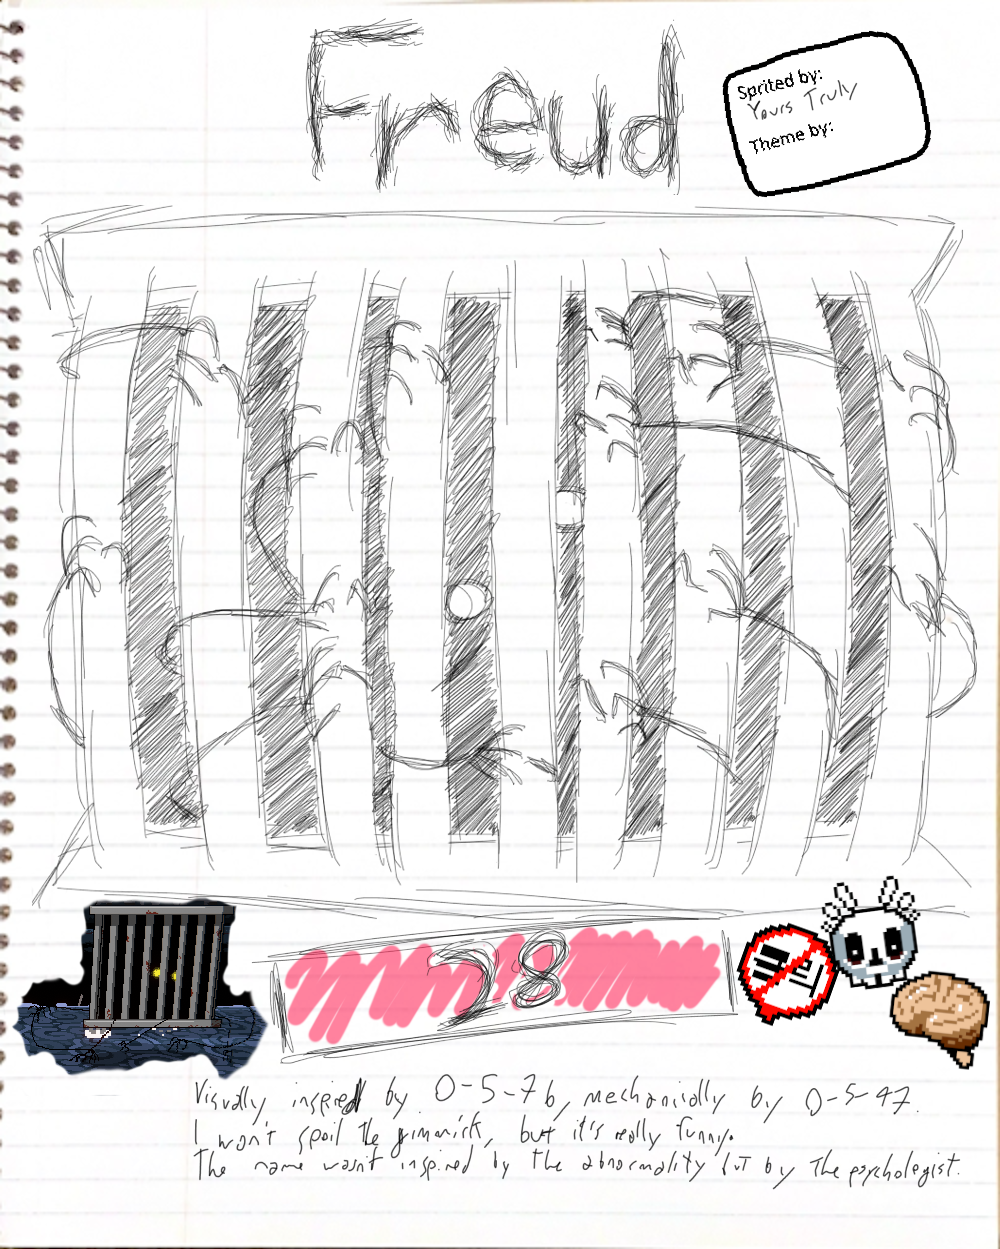 Freud
Sprited by:
Yours Truly
Theme by:
28
Visually inspired by O-5-76, mechanically by O-5-47.
I won't spoil the gimmick, but it's really funny.
The name wasn't inspired by the abnormality but by the psychologist.